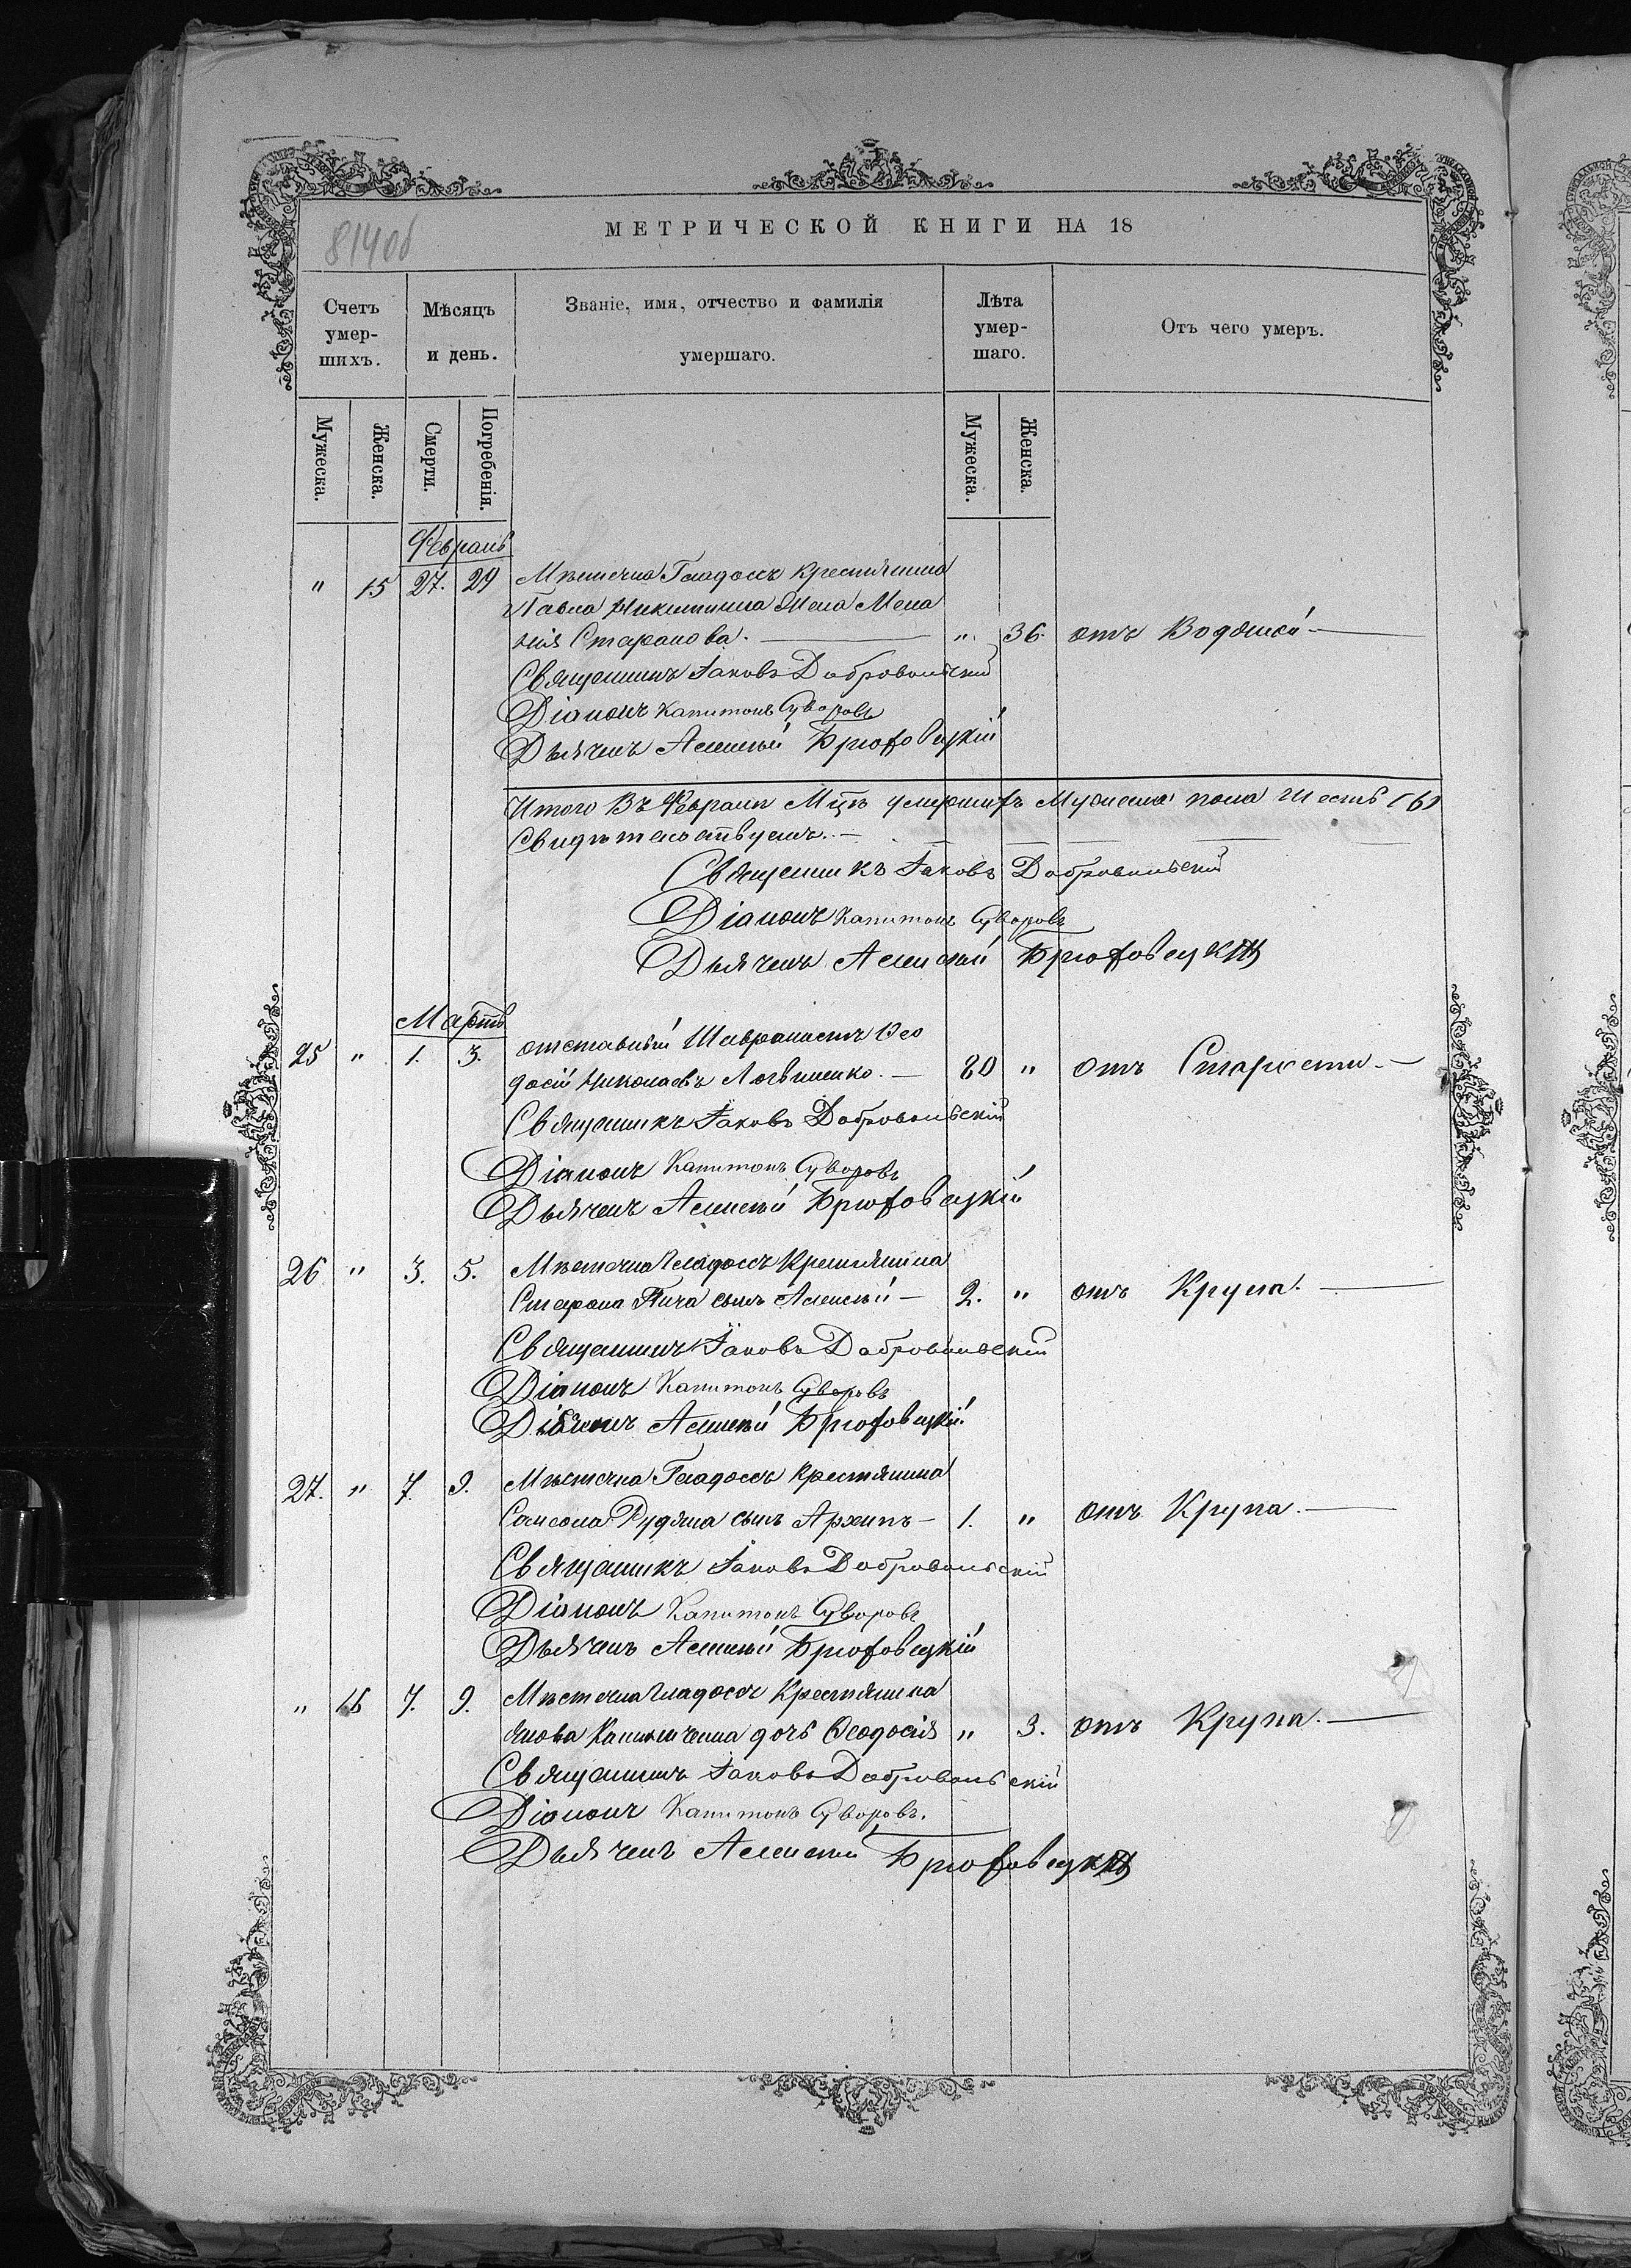 814об
МЕТРИЧЕСКОЙ КНИГИ НА 18
Счетъ умер-шихъ.
Мѣсяцъ и день.
Званіе, имя, отчество и фамилія умершаго.
Лѣта умер-шаго.
Отъ чего умеръ.
Мужеска.
Женска.
Смерти.
Погребенія.
Мужеска.
Женска.
Февраль
" 15 27. 29 Мѣстечка Гладосъ крестьянина
Павла Никитина Жена Мела
нія Старапова. — ". 36. отъ Водяной —
Священникъ Іаковъ Добровольскій
Діаконъ Капитонъ Суворовъ
Дьячекъ Алексѣй Брюховецкій
Итого Въ Февралѣ Мцѣ умершихъ Мужеска пола Шесть (6)
Свидѣтельствуемъ. —
Священникъ Іаковъ Добровольскій
Діаконъ Капитонъ Суворовъ
Дьячекъ Алексѣй Брюховецкій
Мартъ
25 " 1. 3. отставный Ѳео
досій Николаевъ Логвиненко. — 80 " отъ Старости. —
Священникъ Іаковъ Добровольскій
Діаконъ Капитонъ Суворовъ
Дьячекъ Алексѣй Брюховецкій
26 " 3. 5. Мѣстечка Гладосъ Крестьянина
сынъ Алексѣй — 2. " отъ Крупа. —
Священникъ Іаковъ Добровольскій
Діаконъ Капитонъ Суворовъ
Дьячекъ Алексѣй Брюховецкій
27. " 7. 9. Мѣстечка Гладосъ Крестьянина
Самсона Рудяка сынъ Архипъ — 1. " отъ Крупа. —
Священникъ Іаковъ Добровольскій
Діаконъ Капитонъ Суворовъ
Дьячекъ Алексѣй Брюховецкій
" 16 7. 9. Мѣстечка Гладосъ Крестьянина
Якова дочь Ѳеодосія " 3. отъ Крупа. —
Священникъ Іаковъ Добровольскій
Діаконъ Капитонъ Суворовъ.
Дьячекъ Алексѣй Брюховецкій